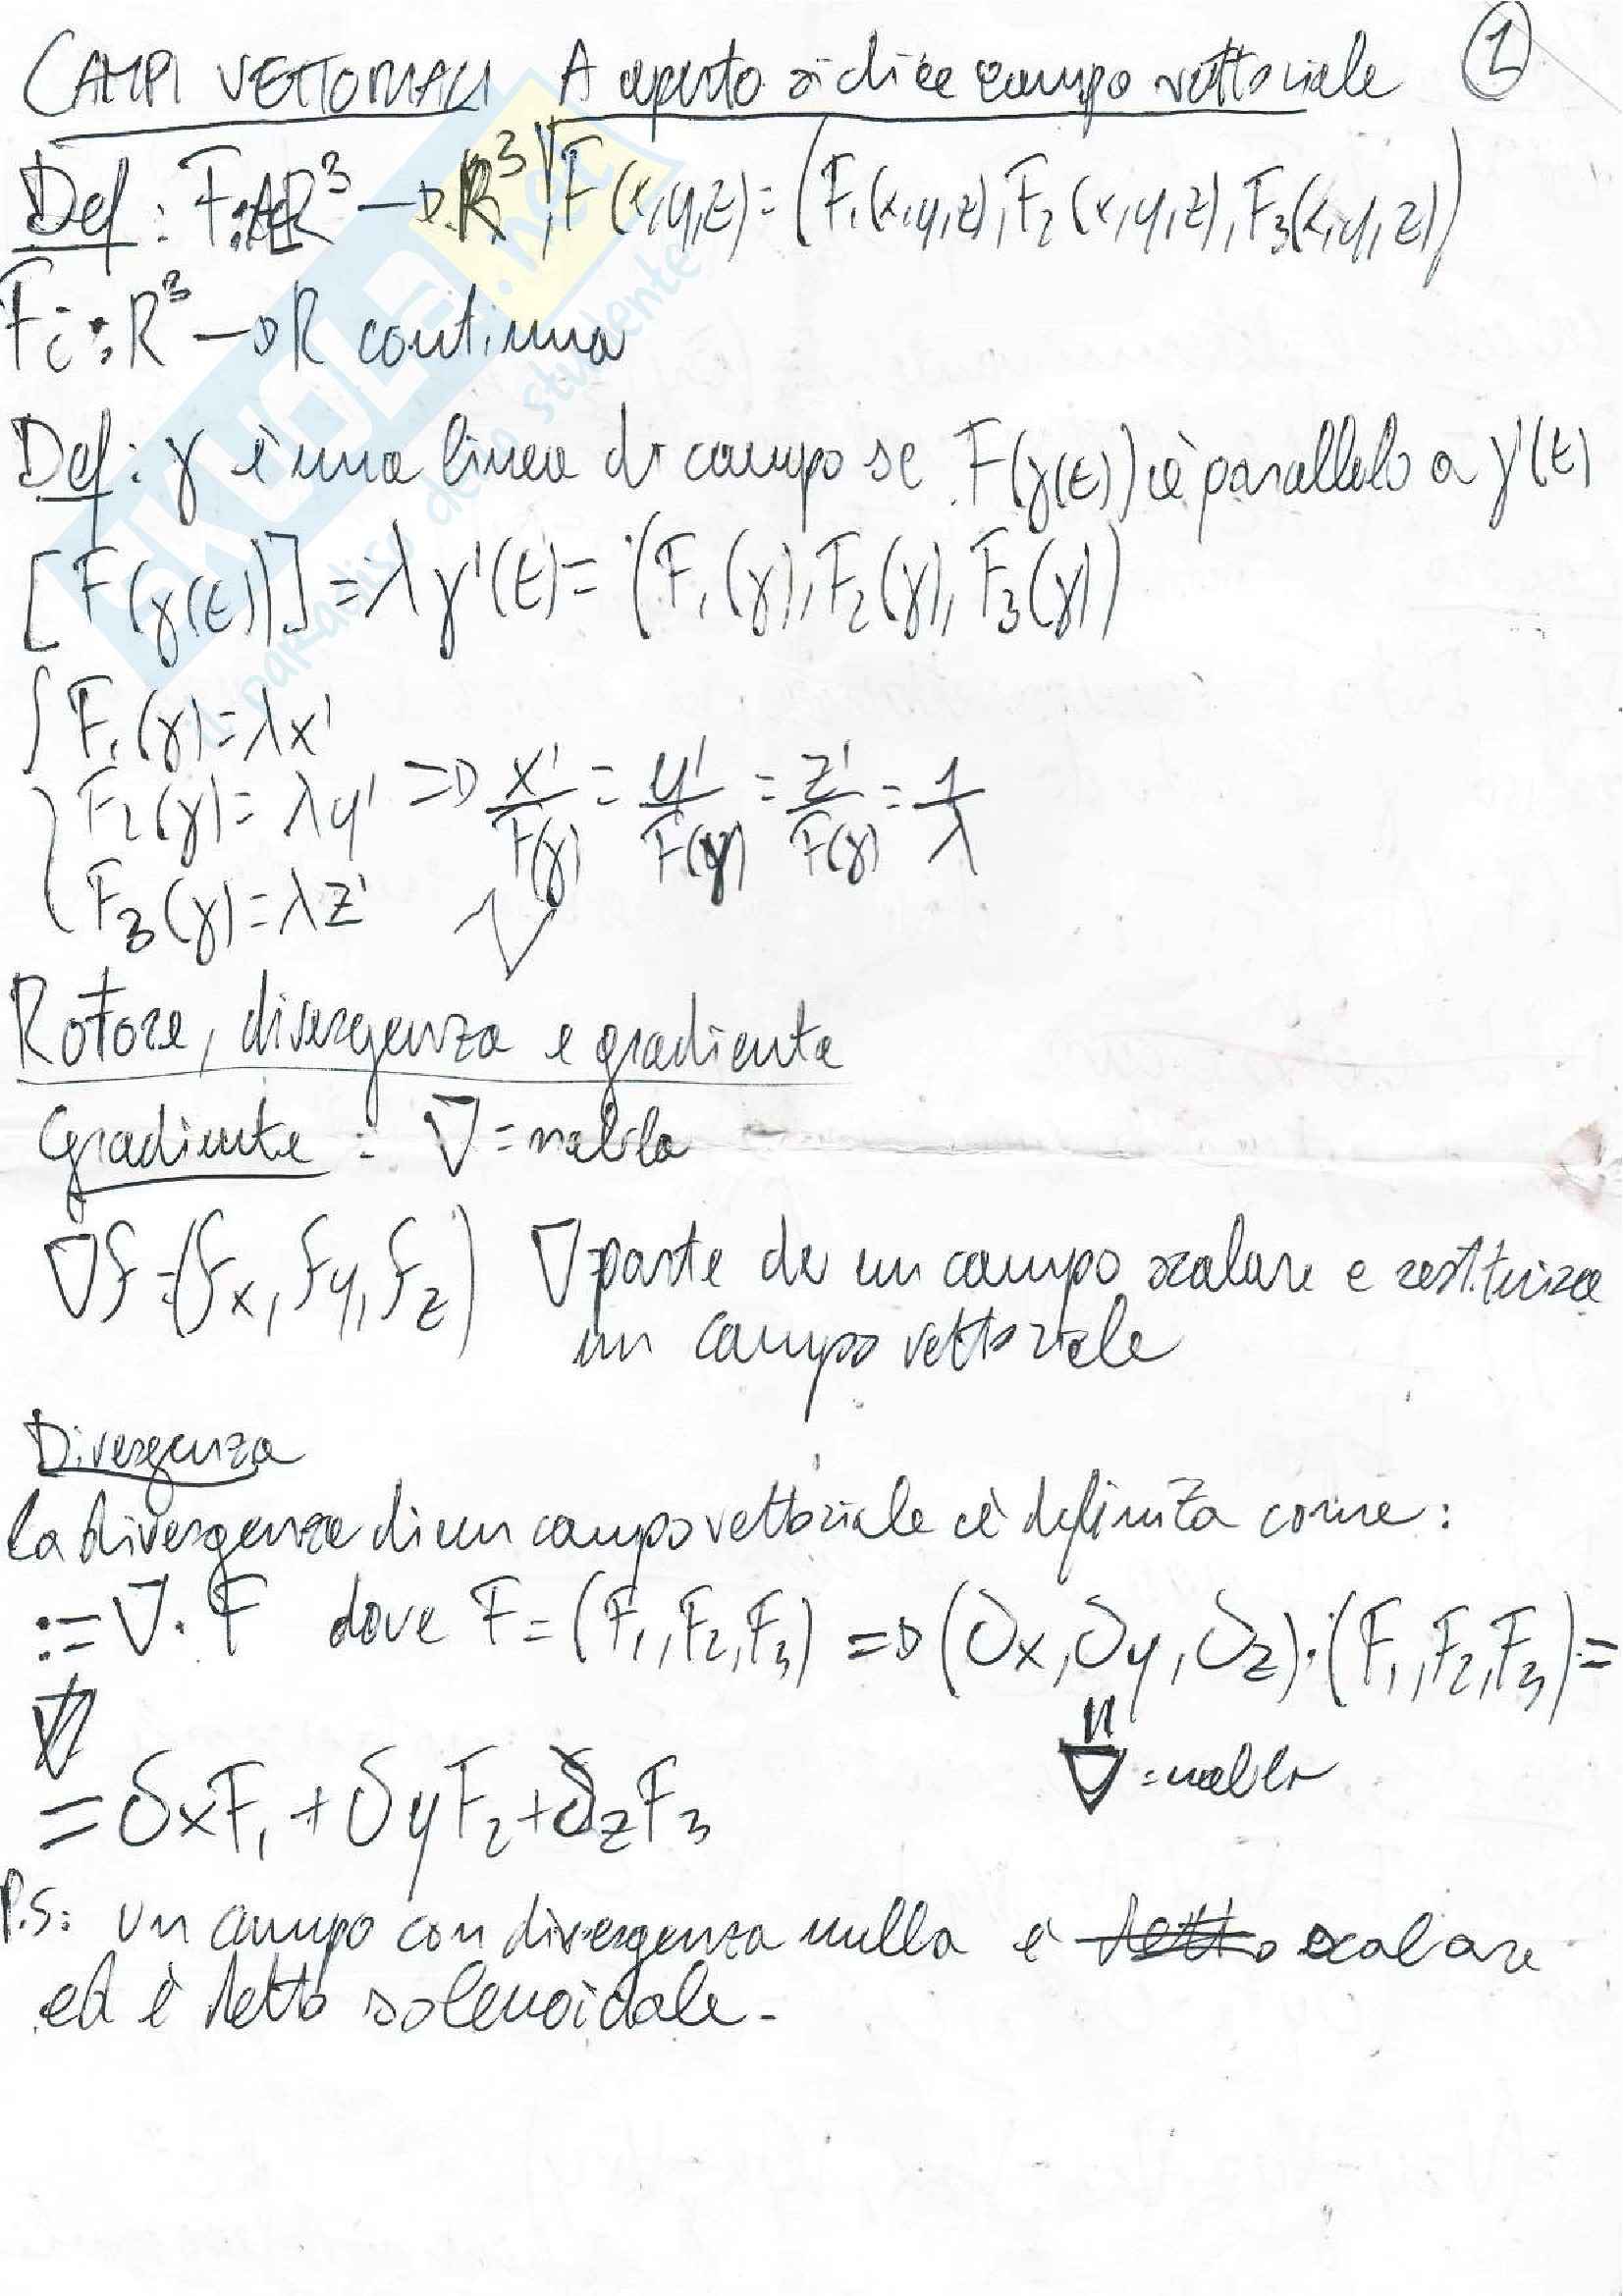 CAMPI VETTORIALI A aperto si dice campo vettoriale 1
Def: F: A⊆R³ → R³, F(x,y,z)=(F₁(x,y,z), F₂(x,y,z), F₃(x,y,z))
Fi: R³ → R continua
Def: γ è una linea di campo se F(γ(t)) è parallelo a γ'(t)
[F(γ(t))] = λγ'(t) = (F₁(γ), F₂(γ), F₃(γ))
{ F₁(γ)=λx'
F₂(γ)=λy' => x'/F(γ) = y'/F(γ) = z'/F(γ) = 1/λ
F₃(γ)=λz'
Rotore, divergenza e gradiente
Gradiente: ∇=nabla
∇f=(fx, fy, fz) ∇ parte da un campo scalare e restituisce
un campo vettoriale
Divergenza
La divergenza di un campo vettoriale è definita come:
:= ∇·F dove F=(F₁,F₂,F₃) => (∂x,∂y,∂z)·(F₁,F₂,F₃)=
∇=nabla
= ∂xF₁+∂yF₂+∂zF₃
P.S: un campo con divergenza nulla è detto scalare
ed è detto solenoidale.
SKUOLA.net
il paradiso dello studente